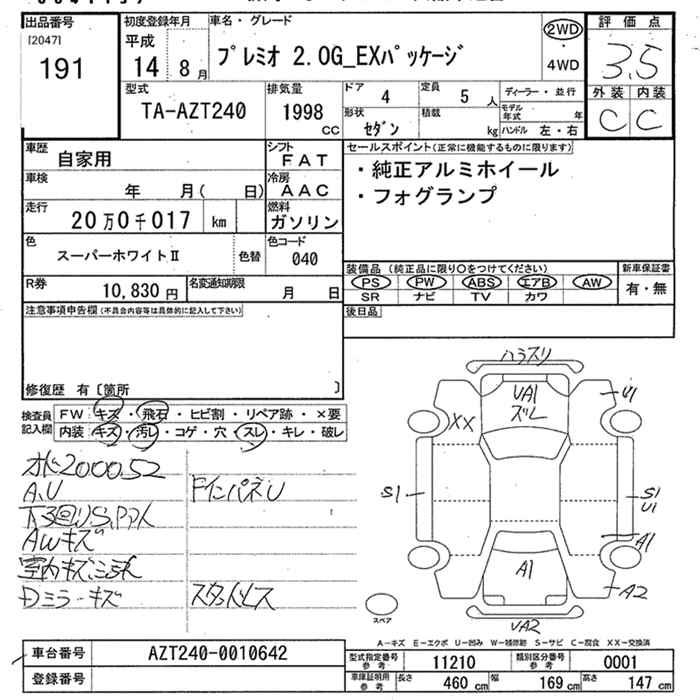 出品番号
[2047]
191
初度登録年月
平成
14年 8月
車名・グレード
プレミオ 2.0G_EXパッケージ
2WD
・
4WD
評価点
3.5
外装 内装
C C
型式
TA-AZT240
排気量
1998
CC
ドア
4
定員
5 人
形状
セダン
積載
kg
ディーラー・並行
モデル年式 年
ハンドル 左・右
車歴
自家用
シフト
FAT
車検
年 月( 日)
冷房
AAC
走行
20万0千017 km
燃料
ガソリン
色
スーパーホワイトⅡ
色替
色コード
040
R券
10,830 円
名変通知期限
月 日
セールスポイント(正常に機能するものに限ります)
・純正アルミホイール
・フォグランプ
装備品(純正品に限り○をつけてください)
新車保証書
PS PW ABS エアB AW
有・無
SR ナビ TV カワ
後日品
注意事項申告欄(不具合内容等は具体的に記入して下さい)
修復歴 有〔箇所 〕
検査員記入欄
FW キズ・飛石・ヒビ割・リペア跡・×要
内装 キズ・汚レ・コゲ・穴・スレ・キレ・破レ
200052
A、U
FインパネU
AWキズ
Dミラーキズ
スタッドレス
ハラスリ
UA1
ズレ
U1
XX
S1
S1
U1
A1
A1
A2
UA2
スペア
A-キズ E-エクボ U-凹み W-補修跡 S-サビ C-腐食 XX-交換済
車台番号
AZT240-0010642
登録番号
型式指定番号 参考
11210
類別区分番号 参考
0001
車庫証明用 参考
長さ 460 cm
幅 169 cm
高さ 147 cm